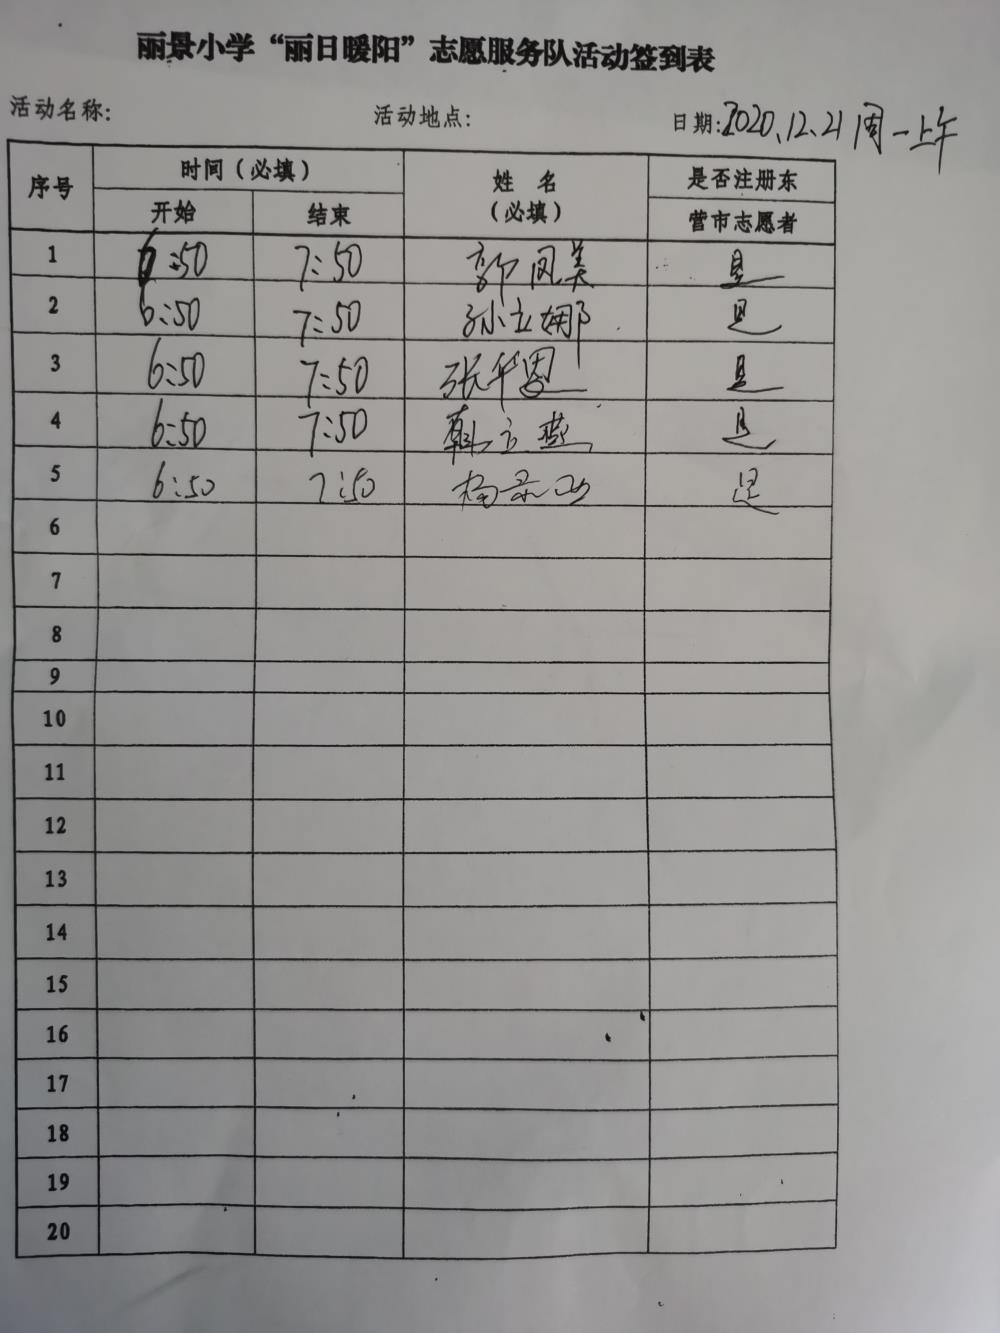 丽景小学“丽日暖阳”志愿服务队活动签到表
活动名称: 活动地点: 日期:2020.12.21周一上午
序号 时间（必填） 姓 名（必填） 是否注册东营市志愿者
开始 结束
1 6:50 7:50 郭凤美 是
2 6:50 7:50 孙立娜 是
3 6:50 7:50 张华 是
4 6:50 7:50 韩立燕 是
5 6:50 7:50 杨景 是
6
7
8
9
10
11
12
13
14
15
16
17
18
19
20